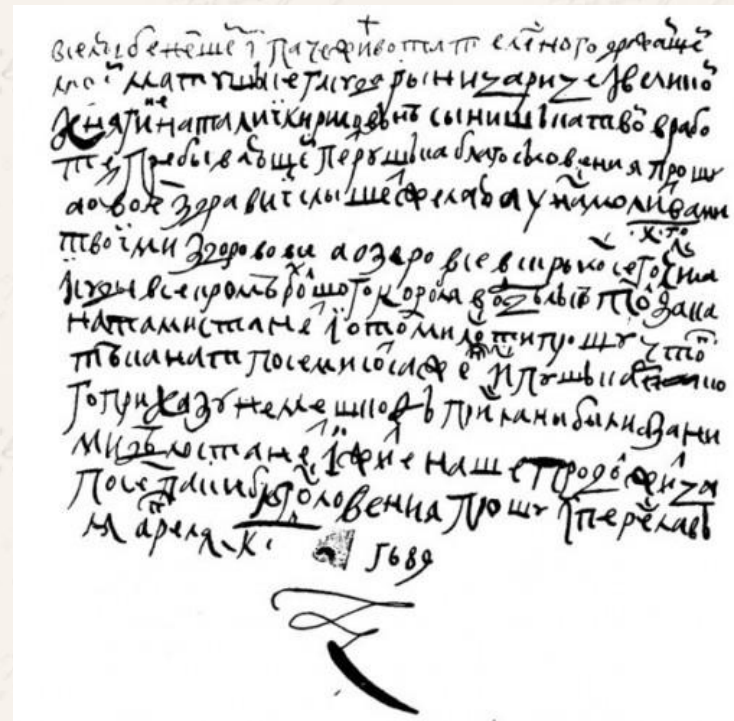 +
вселюбенеше і паче живота теленого дражаше
моеі матушъке гасударыни царице і великоі
княгине наталиі кириловне сынишка твоі в рабо
те пребывающе петрушъка благословения прошу
а о твое здравиі слышеть желаю а у нас молитвами
твоіми здорово все а озеро все вскрылось сего к го числа
і суды все кроме болшого корабля в отделке токо за кана
натами стане і о том милости прошу чтоб
те канаты по семисот сажен ис пушка
го приказу не мешкав присланы были а за ни
ми дело стане і житье наше продолжица
посем паки благословения прошу іс переславля
апреля к 1689